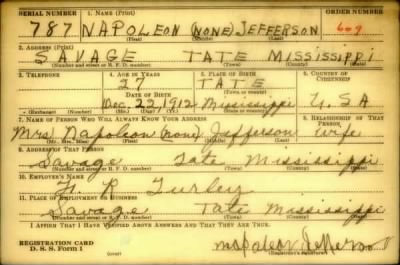 SERIAL NUMBER 1. NAME (Print) ORDER NUMBER
787 NAPOLEON (NONE) JEFFERSON 609
(First) (Middle) (Last)
2. ADDRESS (Print)
SAVAGE TATE MISSISSIPPI
(Number and street or R. F. D. number) (Town) (County) (State)
3. TELEPHONE 4. AGE IN YEARS 5. PLACE OF BIRTH 6. COUNTRY OF CITIZENSHIP
27 TATE
DATE OF BIRTH (Town or county)
Dec. 22, 1912 Mississippi U.S.A
(Exchange) (Number) (Mo.) (Day) (Yr.) (State or country)
7. NAME OF PERSON WHO WILL ALWAYS KNOW YOUR ADDRESS 8. RELATIONSHIP OF THAT PERSON
Mrs. Napoleon (none) Jefferson Wife
(Mr., Mrs., Miss) (First) (Middle) (Last)
9. ADDRESS OF THAT PERSON
Savage Tate Mississippi
(Number and street or R. F. D. number) (Town) (County) (State)
10. EMPLOYER'S NAME
R Turley
11. PLACE OF EMPLOYMENT OR BUSINESS
Savage Tate Mississippi
(Number and street or R. F. D. number) (Town) (County) (State)
I AFFIRM THAT I HAVE VERIFIED ABOVE ANSWERS AND THAT THEY ARE TRUE.
REGISTRATION CARD
D. S. S. FORM 1 (over) (Registrant's signature)